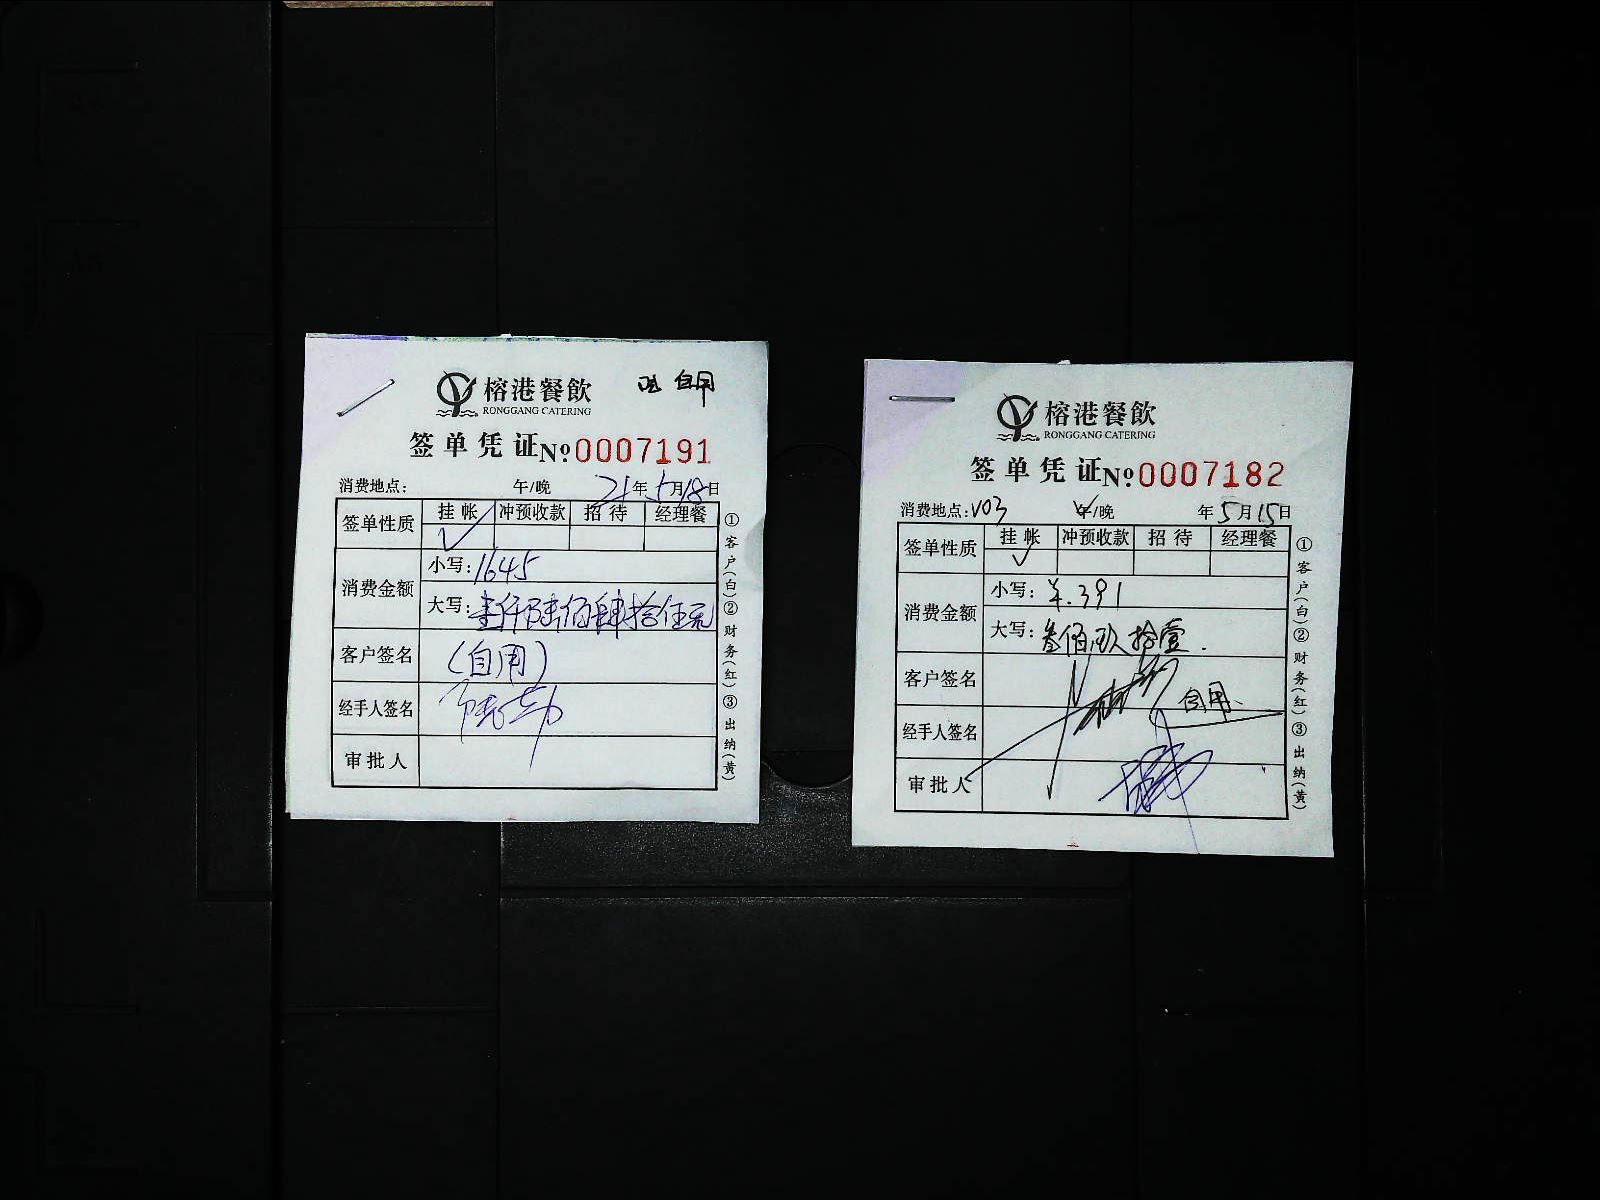 榕港餐飲
自用
RONGGANG CATERING
签单凭证№0007191
消费地点： 午/晚 21年5月18日
签单性质 挂帐 冲预收款 招待 经理餐
✓
消费金额 小写：1645
大写：壹仟陆佰肆拾伍元
客户签名 （自用）
经手人签名
审批人
①客户（白）②财务（红）③出纳（黄）
榕港餐飲
RONGGANG CATERING
签单凭证№0007182
消费地点：V03 午/晚 年5月15日
签单性质 挂帐 冲预收款 招待 经理餐
✓
消费金额 小写：¥.391
大写：叁佰玖拾壹.
客户签名
自用.
经手人签名
审批人
①客户（白）②财务（红）③出纳（黄）